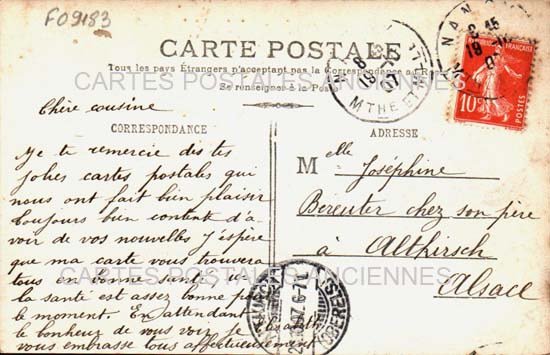 F09183
CARTE POSTALE
Tous les pays Étrangers n'acceptent pas la Correspondance au R
Se renseigner à la Pos
CARTES POSTALES ANCIENNES
Chère cousine
CORRESPONDANCE
Je te remercie des tes
jolies cartes postales qui
nous ont fait bien plaisir
toujours bien content d'a-
voir de vos nouvelles J'espère
que ma carte vous trouvera
tous en bonne santé
la santé est assez bonne p
le moment. En attendant
le bonheur de vous voir je
vous embrasse tous affectueusement
ADRESSE
Melle Joséphine
Bereuter chez son père
à Altkirsch
Alsace
CARTES POSTALES ANCIENNES
NAN
45
18
FRANÇAISE
10
8
18
07
MTHE